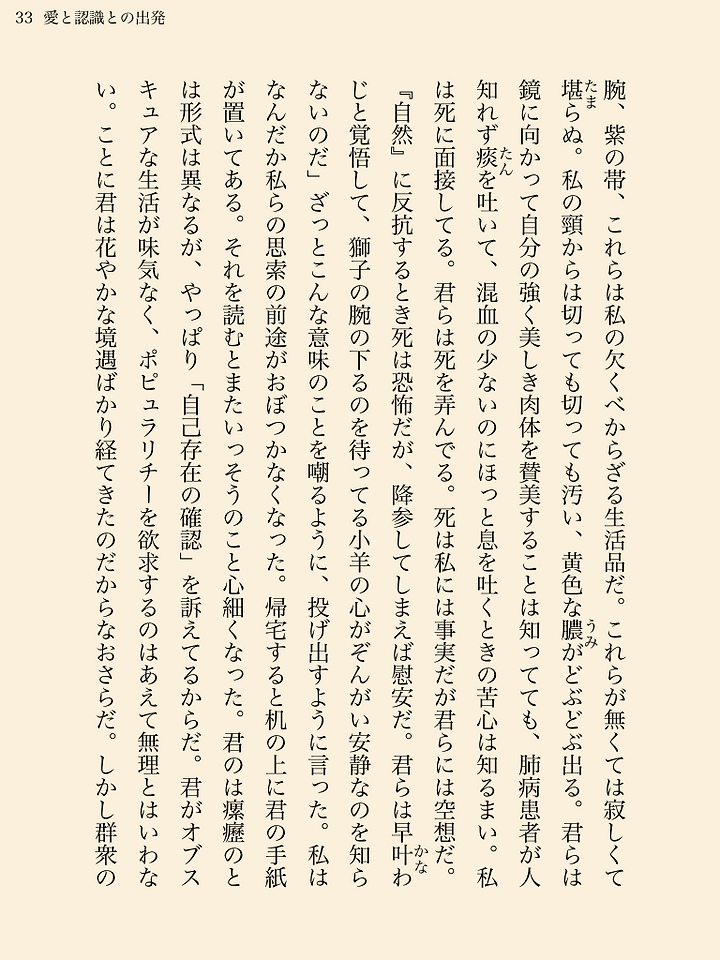 33 愛と認識との出発
腕、紫の帯、これらは私の欠くべからざる生活品だ。これらが無くては寂しくて
堪らぬ。私の頸からは切っても切っても汚い、黄色な膿がどぶどぶ出る。君らは
鏡に向かって自分の強く美しき肉体を賛美することは知ってても、肺病患者が人
知れず痰を吐いて、混血の少ないのにほっと息を吐くときの苦心は知るまい。私
は死に面接してる。君らは死を弄んでる。死は私には事実だが君らには空想だ。
『自然』に反抗するとき死は恐怖だが、降参してしまえば慰安だ。君らは早叶わ
じと覚悟して、獅子の腕の下るのを待ってる小羊の心がぞんがい安静なのを知ら
ないのだ」ざっとこんな意味のことを嘲るように、投げ出すように言った。私は
なんだか私らの思索の前途がおぼつかなくなった。帰宅すると机の上に君の手紙
が置いてある。それを読むとまたいっそうのこと心細くなった。君のは瘰癧のと
は形式は異なるが、やっぱり「自己存在の確認」を訴えてるからだ。君がオブス
キュアな生活が味気なく、ポピュラリチーを欲求するのはあえて無理とはいわな
い。ことに君は花やかな境遇ばかり経てきたのだからなおさらだ。しかし群衆の
たま
うみ
たん
かな